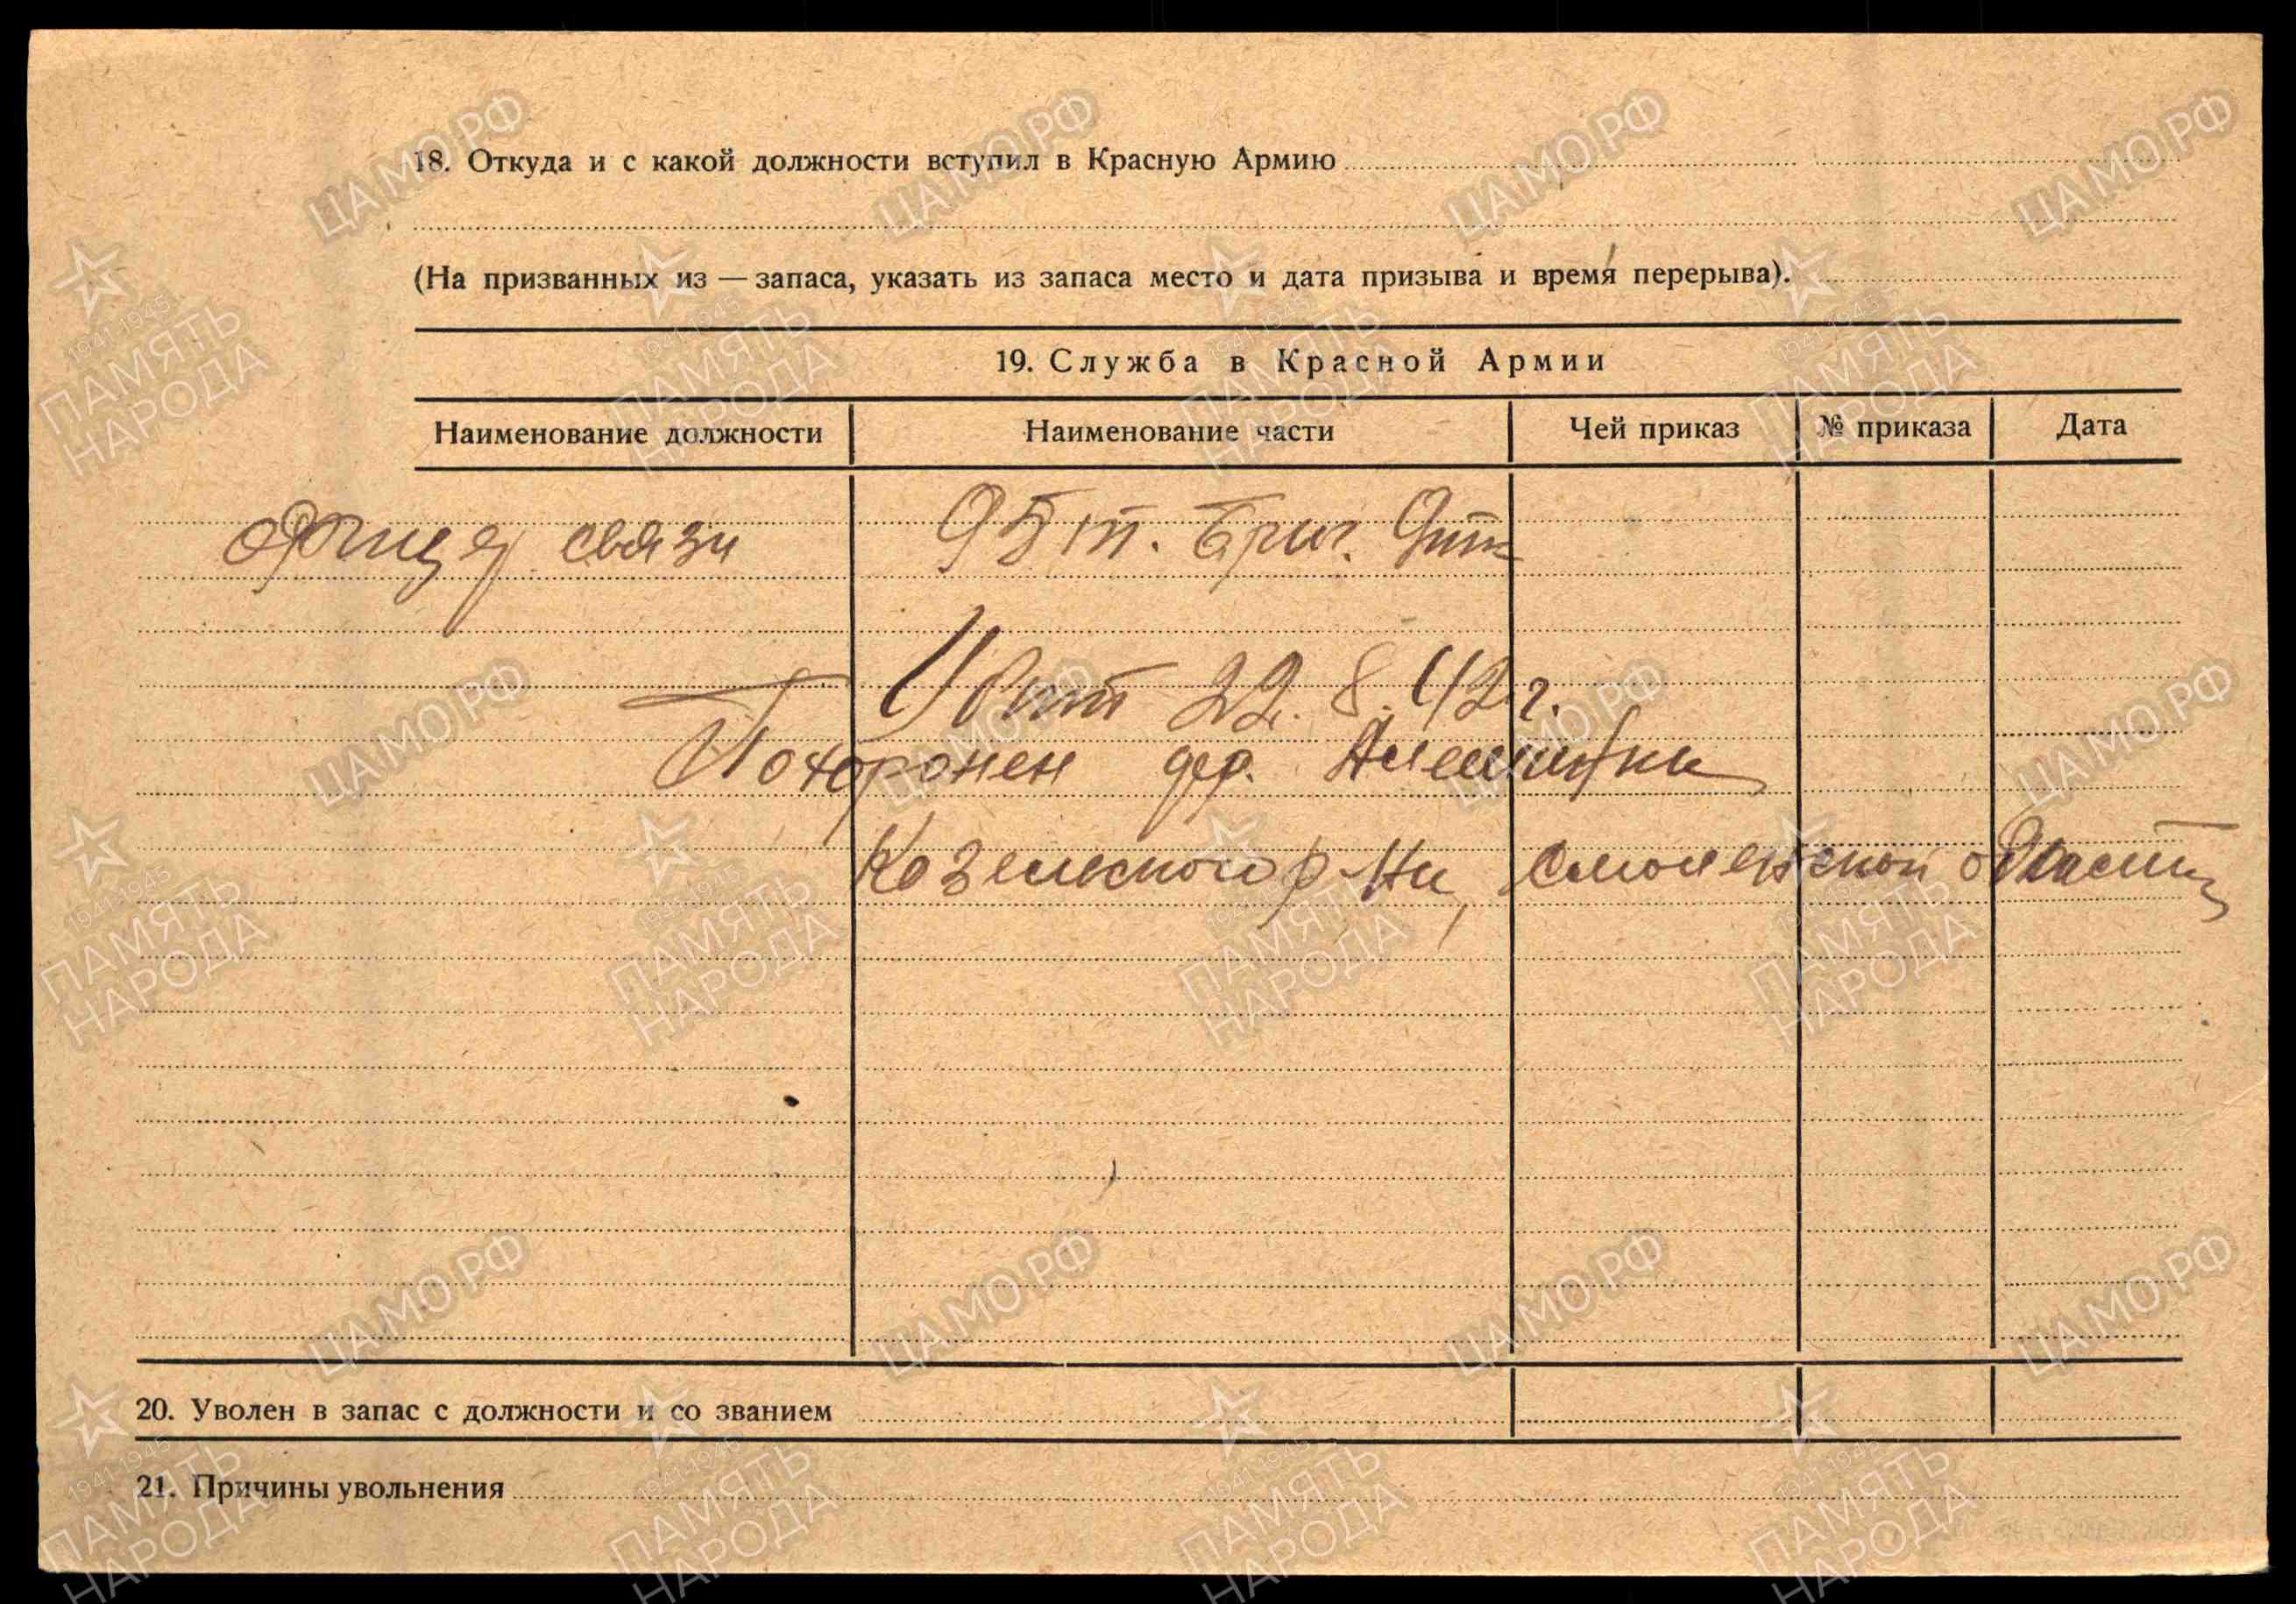 18. Откуда и с какой должности вступил в Красную Армию
(На призванных из — запаса, указать из запаса место и дата призыва и время перерыва).
19. Служба в Красной Армии
Наименование должности Наименование части Чей приказ № приказа Дата
офицер связи 95 т. бриг. 9тк
Убит 22.8.42 г.
Похоронен дер.
Козельского р-на, Смоленской области
20. Уволен в запас с должности и со званием
21. Причины увольнения
ЦАМО.РФ
1941-1945
ПАМЯТЬ
НАРОДА